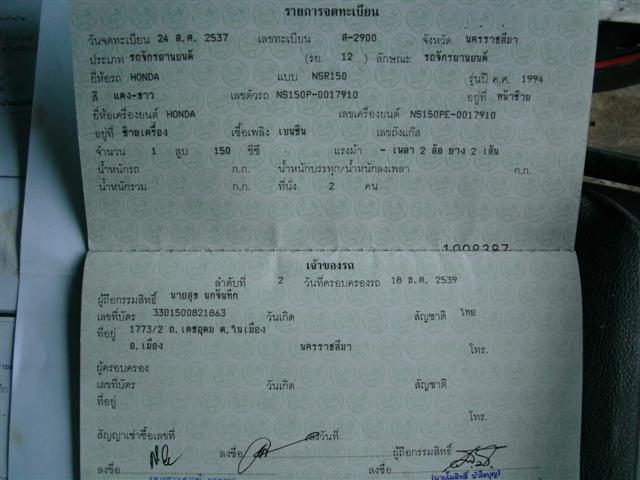 รายการจดทะเบียน
วันจดทะเบียน 24 ส.ค. 2537 เลขทะเบียน ส-2900 จังหวัด นครราชสีมา
ประเภท รถจักรยานยนต์ (รย. 12 ) ลักษณะ รถจักรยานยนต์
ยี่ห้อรถ HONDA แบบ NSR150 รุ่นปี ค.ศ. 1994
สี แดง-ขาว เลขตัวรถ NS150P-0017910 อยู่ที่ หน้าซ้าย
ยี่ห้อเครื่องยนต์ HONDA เลขเครื่องยนต์ NS150PE-0017910
อยู่ที่ ซ้ายเครื่อง เชื้อเพลิง เบนซิน เลขถังแก๊ส
จำนวน 1 สูบ 150 ซีซี แรงม้า - เพลา 2 ล้อ ยาง 2 เส้น
น้ำหนักรถ ก.ก. น้ำหนักบรรทุก/น้ำหนักลงเพลา ก.ก.
น้ำหนักรวม ก.ก. ที่นั่ง 2 คน
1008387
เจ้าของรถ
ลำดับที่ 2 วันที่ครอบครองรถ 18 ธ.ค. 2539
ผู้ถือกรรมสิทธิ์ นายสุข นกจันทึก
เลขที่บัตร 3301500821863 วันเกิด สัญชาติ ไทย
ที่อยู่ 1773/2 ถ.เดชอุดม ต.ในเมือง
อ.เมือง นครราชสีมา โทร.
ผู้ครอบครอง
เลขที่บัตร วันเกิด สัญชาติ
ที่อยู่
โทร.
สัญญาเช่าซื้อเลขที่ ลงวันที่
ลงชื่อ ผู้ถือกรรมสิทธิ์
ลงชื่อ ลงชื่อ